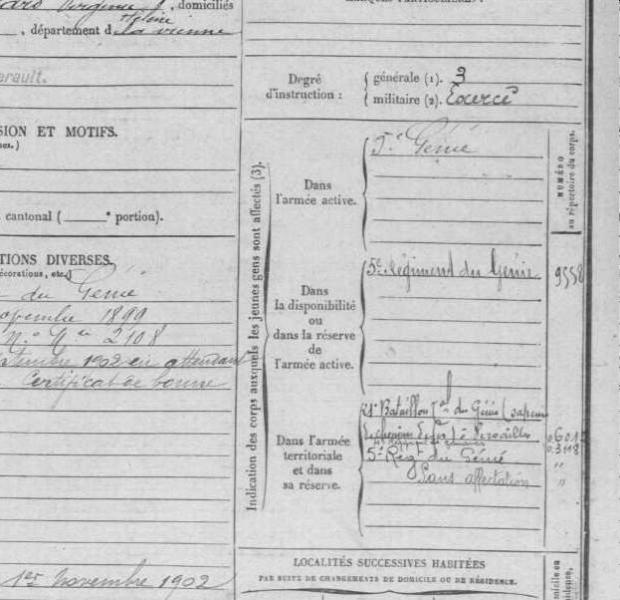 Virginie
, domiciliés
Hélène
, département d la vienne
erault.
SION ET MOTIFS.
cantonal ( ° portion).
TIONS DIVERSES.
écorations, etc.)
du Génie
1890
N° Mle 2108
1902 en attendant
Certificat de bonne
1er Novembre 1902
Degré
d'instruction :
générale (1). 3
militaire (2). Exercé
Indication des corps auxquels les jeunes gens sont affectés (3).
NUMÉRO
au répertoire du corps.
Dans
l'armée active.
5e Génie
Dans
la disponibilité
ou
dans la réserve
de
l'armée active.
5e Régiment du Génie
9558
Dans l'armée
territoriale
et dans
sa réserve.
21e Bataillon Tal du Génie (sapeurs
à Versailles
5e Rég du Génie
Sans affectation
LOCALITÉS SUCCESSIVES HABITÉES
PAR SUITE DE CHANGEMENTS DE DOMICILE OU DE RÉSIDENCE.